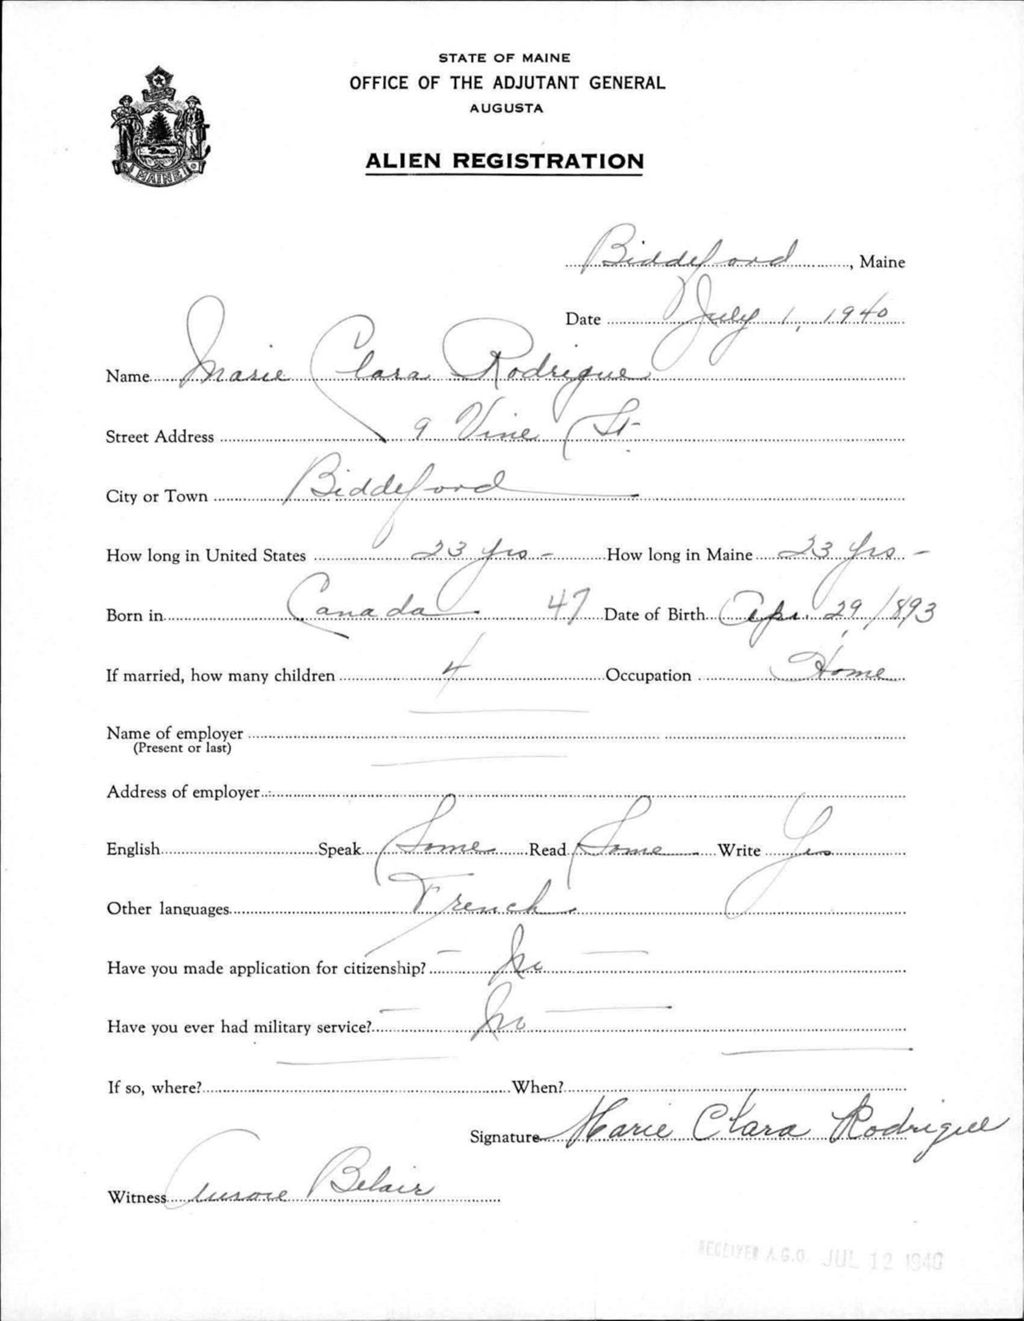 STATE OF MAINE
OFFICE OF THE ADJUTANT GENERAL
AUGUSTA
ALIEN REGISTRATION
MAINE
Biddeford, Maine
Date July 1, 1940
Name Marie Clara Rodrigue
Street Address 9 Vine St.
City or Town Biddeford
How long in United States 23 yrs - How long in Maine 23 yrs -
Born in Canada 47 Date of Birth Apr. 29, 1893
If married, how many children 4 Occupation Home
Name of employer
(Present or last)
Address of employer
English Speak Some Read Some Write Yes
Other languages French
Have you made application for citizenship? No
Have you ever had military service? No
If so, where? When?
Signature Marie Clara Rodrigue
Witness Aurore Belair
RECEIVED A.G.O. JUL 12 1940